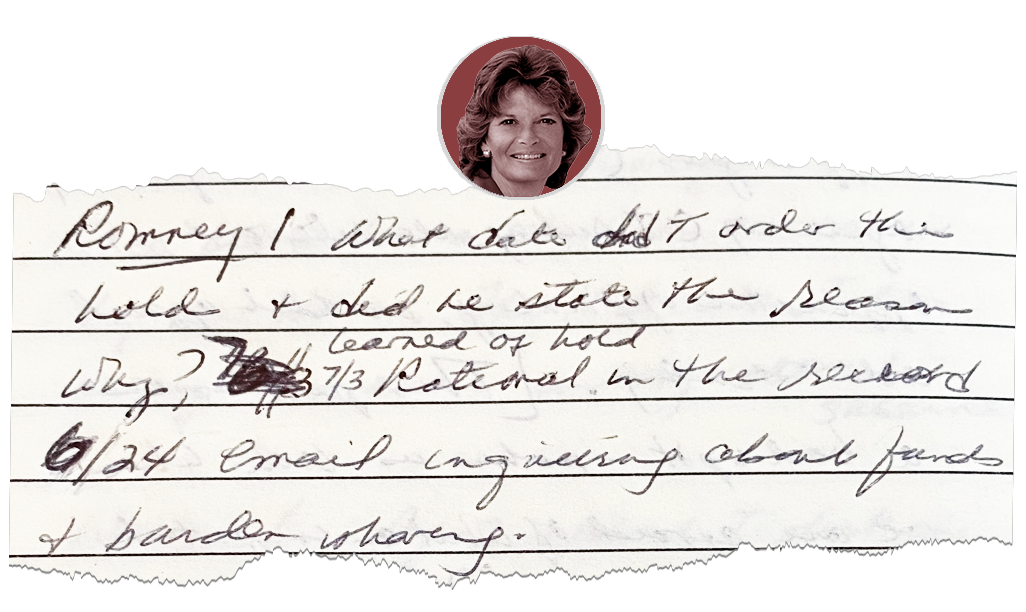 Romney / What date did T order the
hold + did he state the reason
learned of hold
why? 7/3 Rational in the record
6/24 email inquiring about funds
+ burden sharing.